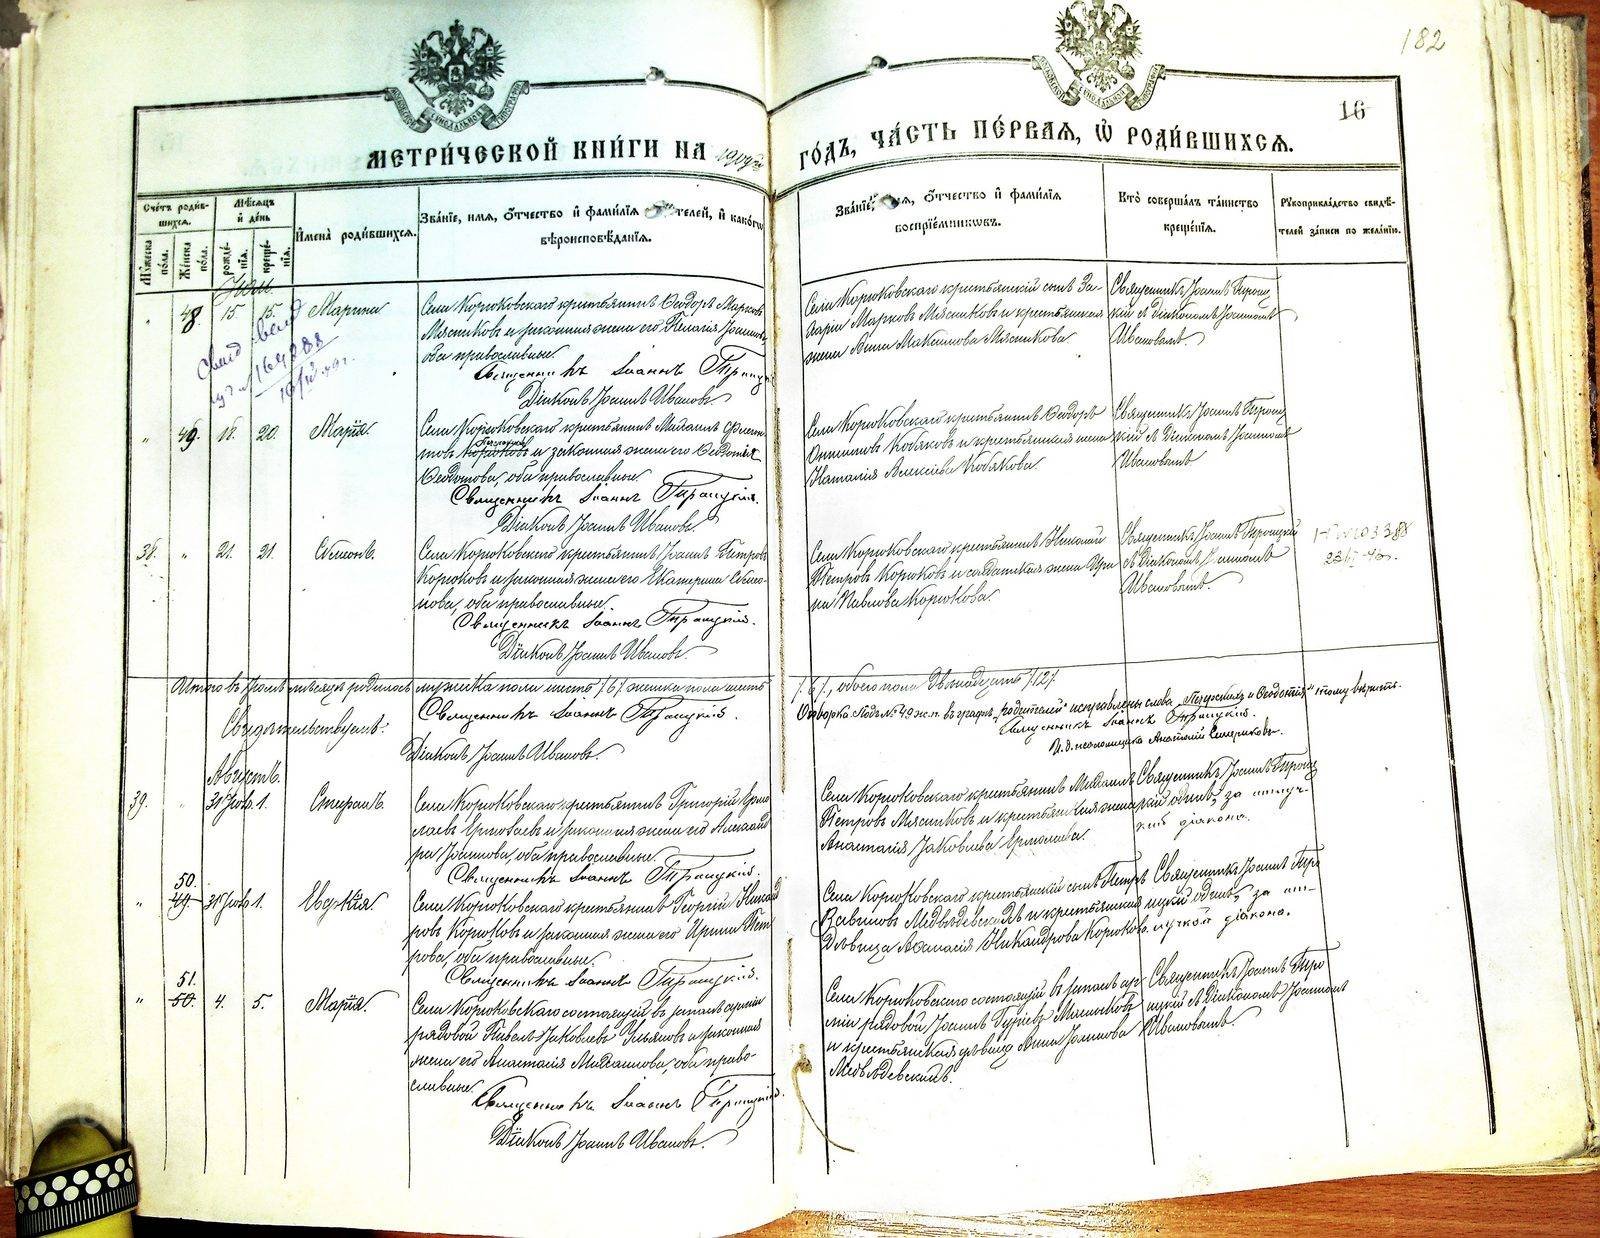 182
16
МЕТРИ́ЧЕСКОЙ КНИ́ГИ НА 1909
ГО́ДЪ, ЧА́СТЬ ПЕ́РВАЯ, Ѿ РОДИ́ВШИХСЯ.
Сче́тъ роди́вшихся.
Мꙋ́жеска по́ла.
Же́нска по́ла.
Мѣ́сяцъ и де́нь
рожде́нїя.
креще́нїя.
И́мена̀ роди́вшихся.
Зва́нїе, имя, ѻ҆́тчество и фами́лїя
телей, и како́гѡ
вѣроисповѣ́данїя.
Зва́нїе, ѻ҆́тчество и фами́лїя
воспрїе́мниковъ.
Кто̀ соверша́лъ та́инство
креще́нїя.
Рꙋкоприкла́дство свидѣ́телей за́писи по жела́нїю.
Іюль
48. 15. 15. Марина
Села Корюковскаго крестьянинъ Ѳеодоръ Марковъ
Мясниковъ и законная жена его Пелагія Іоаннова,
оба православные.
Священникъ Іоаннъ Троицкій
Діаконъ Іоаннъ Ивановъ.
Села Корюковскаго крестьянскій сынъ За-
харій Марковъ Мясниковъ и крестьянская
жена Анна Максимова Мясникова
Священникъ Іоаннъ Троиц-
кій съ Діакономъ Іоанномъ
Ивановымъ
" 49. 18. 20. Марія.
Села Корюковскаго крестьянинъ Михаилъ
и законная жена его Ѳеодотія
Ѳедотова, оба православные.
Священникъ Іоаннъ Троицкій.
Діаконъ Іоаннъ Ивановъ
Села Корюковскаго крестьянинъ Ѳеодоръ
Антиповъ Кобяковъ и крестьянская жена
Наталія Алексѣева Кобякова.
Священникъ Іоаннъ Троиц-
кій съ Діакономъ Іоанномъ
Ивановымъ
38. " 21. 21. Сѵмеонъ.
Села Корюковскаго крестьянинъ Іоаннъ Петровъ
Корюковъ и законная жена его Екатерина
оба православные.
Священникъ Іоаннъ Троицкій.
Діаконъ Іоаннъ Ивановъ.
Села Корюковскаго крестьянинъ Николай
Петровъ Корюковъ и солдатская жена Ири-
на Павлова Корюкова.
Священникъ Іоаннъ Троицкій
съ Діакономъ Іоанномъ
Ивановымъ.
Итого въ Іюлѣ мѣсяцѣ родилось мужска пола шесть /6/ женска пола шесть
/6/, обоего пола Двѣнадцать /12/.
Свидѣтельствуемъ:
Священникъ Іоаннъ Троицкій.
Діаконъ Іоаннъ Ивановъ.
Оговорка. Подъ № 49 ж. п. въ графѣ „родителей“ исправлены слова и Ѳеодотія“ тому вѣрить.
Священникъ Іоаннъ Троицкій.
И. д. псаломщика Анатолій
Августъ.
39. " 31 Іюля 1. Стефанъ.
Села Корюковскаго крестьянинъ Григорій Ермо-
лаевъ и законная жена его Александ-
ра Іоаннова, оба православные.
Священникъ Іоаннъ Троицкій.
Села Корюковскаго крестьянинъ Михаилъ
Петровъ Мясниковъ и крестьянская жена
Анастасія Іаковлева Ермолаева.
Священникъ Іоаннъ Троиц-
кій одинъ, за отлуч-
кой діакона.
50.
" 49. 31 Іюля 1. Евдокія.
Села Корюковскаго крестьянинъ Георгій Никанд-
ровъ Корюковъ и законная жена его Ирина Пет-
рова, оба православные.
Священникъ Іоаннъ Троицкій.
Села Корюковскаго крестьянскій сынъ Петръ
Вавиловъ Медвѣдевскихъ и крестьянская
Дѣвица Аѳанасія Никандрова Корюкова.
Священникъ Іоаннъ Тро-
ицкій одинъ, за от-
лучкой діакона.
51.
" 50. 4. 5. Марія.
Села Корюковскаго состоящій въ запасѣ арміи
рядовой Павелъ Іаковлевъ Ульяновъ и законная
жена его Анастасія Михаилова, оба право-
славные.
Священникъ Іоаннъ Троицкій
Діаконъ Іоаннъ Ивановъ.
Села Корюковскаго состоящій въ запасѣ ар-
міи рядовой Іоаннъ Гурьевъ Мясниковъ
и крестьянская дѣвица Анна Іоаннова
Медвѣдевскихъ.
Священникъ Іоаннъ Тро-
ицкій съ Діакономъ Іоанномъ
Ивановымъ.